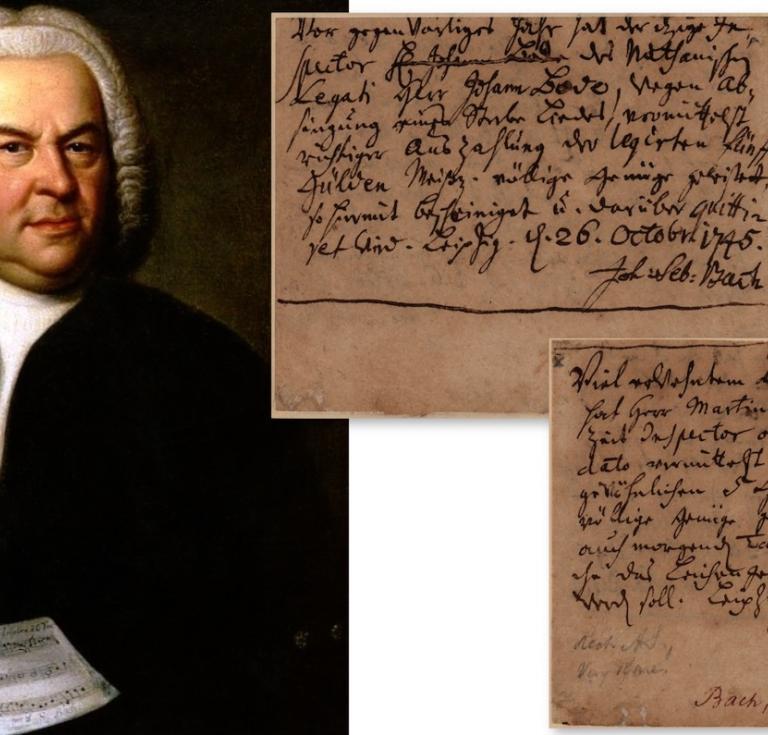 Vor gegenwärtiges Jahr hat der itzige In-
spector des Nathanischen
Legati Herr Johann Bode, wegen Ab-
singung eines Sterbe Liedes, vermittelst
richtiger Auszahlung der legirten fünff
Gülden Meißn. völlige Genüge geleistet,
so hiermit bescheiniget u. darüber quitti-
ret wird. Leipzig. d. 26. Octobr: 1745.
Joh: Seb: Bach
Viel erwehntem
hat Herr Martin
Zeit Inspector
dato vermittelst
gewöhnlichen 5
völlige Genüge
auch morgend
das Leichen
werd soll. Leipz
Very Rare.
Bach,